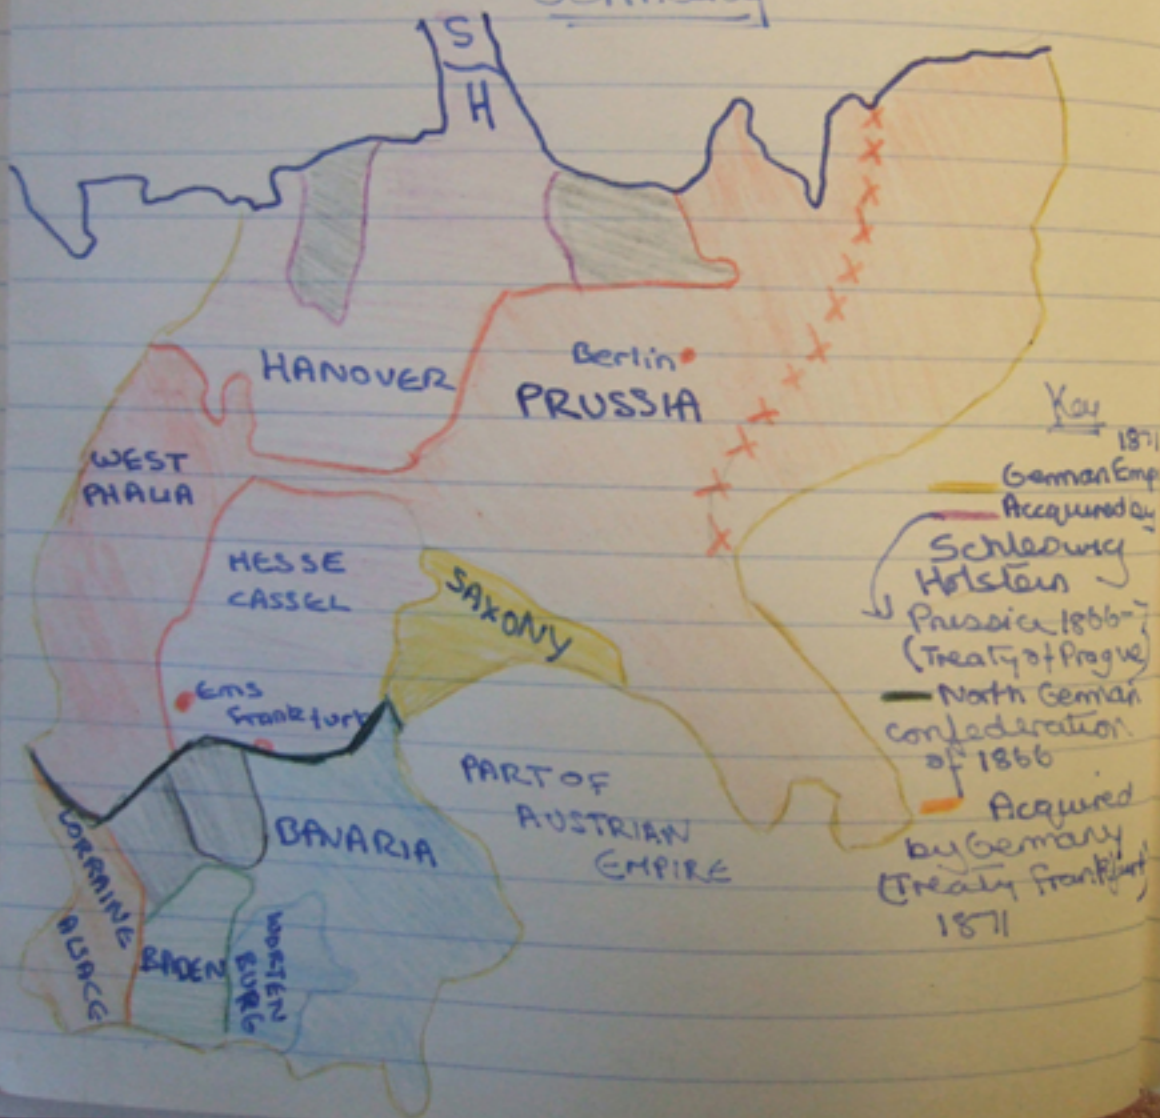 Germany
S
H
HANOVER
Berlin
PRUSSIA
WEST
PHALIA
HESSE
CASSEL
SAXONY
Ems
Frankfurt
PART OF
AUSTRIAN
EMPIRE
BAVARIA
LORRAINE
ALSACE
BADEN
WURTEN
BURG
Key
1871
German Emp
Accquired by
Schleswig
Holstein
Prussia 1866-7
(Treaty of Prague)
North German
confederation
of 1866
Acquired
by Germany
(Treaty Frankfurt)
1871